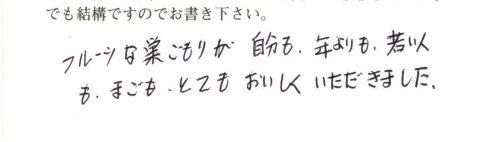 でも結構ですのでお書き下さい。
フルーツな巣ごもりが 自分も、年よりも、若い人
も、まごも、とても おいしく いただきました。